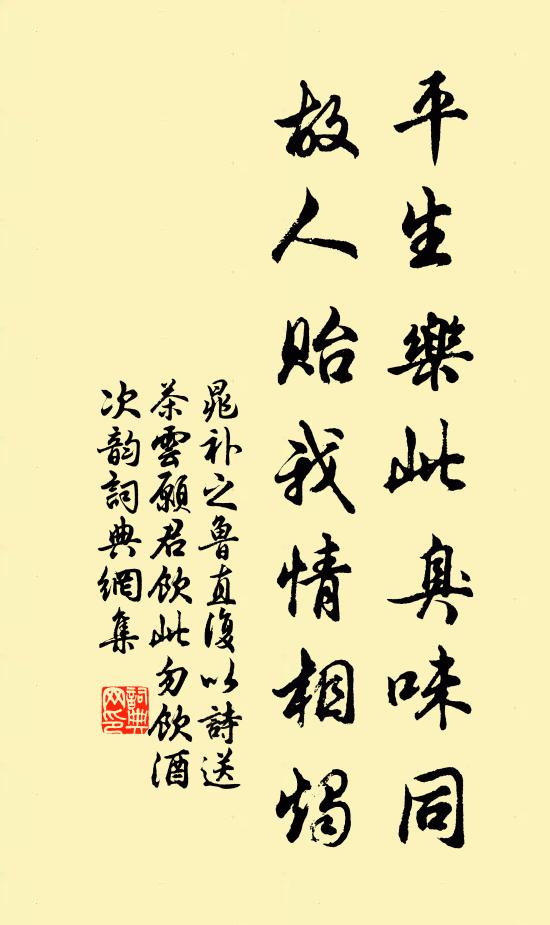 平生樂此臭味同
故人貽我情相燭
晁补之魯直復以詩送
茶雲願君飲此勿飲酒
次韵詞典網集
詞典
网印